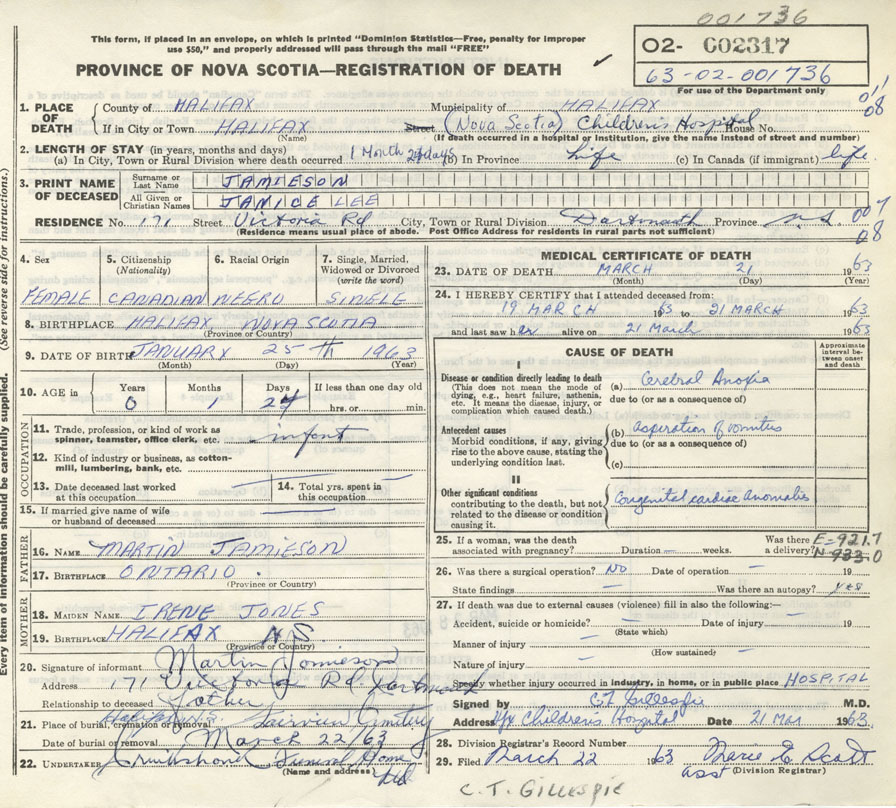 001736
This form, if placed in an envelope, on which is printed "Dominion Statistics—Free, penalty for improper
use $50," and properly addressed will pass through the mail "FREE"
PROVINCE OF NOVA SCOTIA—REGISTRATION OF DEATH
02- 002317
63-02-001736
For use of the Department only
011
08
1. PLACE OF DEATH
County of HALIFAX Municipality of HALIFAX
If in City or Town HALIFAX Street (Nova Scotia) Children's Hospital House No.
(Name) (If death occurred in a hospital or institution, give the name instead of street and number)
2. LENGTH OF STAY (in years, months and days)
(a) In City, Town or Rural Division where death occurred 1 Month days (b) In Province Life (c) In Canada (if immigrant) life
3. PRINT NAME OF DECEASED
Surname or Last Name JAMIESON
All Given or Christian Names JANICE LEE
RESIDENCE No. 171 Street Victoria Rd City, Town or Rural Division Dartmouth Province N.S 007
08
(Residence means usual place of abode. Post Office Address for residents in rural parts not sufficient)
(See reverse side for instructions.)
Every item of information should be carefully supplied.
4. Sex 5. Citizenship (Nationality) 6. Racial Origin 7. Single, Married, Widowed or Divorced (write the word)
FEMALE CANADIAN NEGRO SINGLE
8. BIRTHPLACE HALIFAX NOVA SCOTIA
(Province or Country)
9. DATE OF BIRTH JANUARY 25th 1963
(Month) (Day) (Year)
10. AGE in Years Months Days If less than one day old
0 1 hrs. or min.
OCCUPATION
11. Trade, profession, or kind of work as spinner, teamster, office clerk, etc. infant
12. Kind of industry or business, as cotton-mill, lumbering, bank, etc.
13. Date deceased last worked at this occupation 14. Total yrs. spent in this occupation
15. If married give name of wife or husband of deceased
FATHER
16. NAME MARTIN JAMIESON
17. BIRTHPLACE ONTARIO.
(Province or Country)
MOTHER
18. MAIDEN NAME IRENE JONES
19. BIRTHPLACE HALIFAX N.S.
(Province or Country)
20. Signature of informant Martin Jamieson
Address 171 Victoria Rd. Dartmouth
Relationship to deceased Father
21. Place of burial, cremation or removal Fairview Cemetery
Date of burial or removal March 22/63
22. UNDERTAKER Cruikshanks Funeral Home
(Name and address) Ltd
MEDICAL CERTIFICATE OF DEATH
23. DATE OF DEATH MARCH 21 1963
(Month) (Day) (Year)
24. I HEREBY CERTIFY that I attended deceased from:
19 MARCH 1963 to 21 MARCH 1963
and last saw her alive on 21 March 1963
CAUSE OF DEATH
Approximate interval between onset and death
I
Disease or condition directly leading to death (a) Cerebral Anoxia
(This does not mean the mode of dying, e.g., heart failure, asthenia, etc. It means the disease, injury, or complication which caused death.)
due to (or as a consequence of)
Antecedent causes (b) Aspiration of vomitus
Morbid conditions, if any, giving rise to the above cause, stating the underlying condition last.
due to (or as a consequence of)
(c)
II
Other significant conditions contributing to the death, but not related to the disease or condition causing it.
Congenital cardiac Anomalies
25. If a woman, was the death associated with pregnancy? Duration — weeks. Was there a delivery?
E-921.7
N 933.0
26. Was there a surgical operation? NO Date of operation — 19
State findings — Was there an autopsy? yes
27. If death was due to external causes (violence) fill in also the following:—
Accident, suicide or homicide? — Date of injury — 19
(State which)
Manner of injury —
(How sustained)
Nature of injury —
Specify whether injury occurred in industry, in home, or in public place HOSPITAL
Signed by CT Gillespie M.D.
Address Hfx Children's Hospital Date 21 Mar 1963
28. Division Registrar's Record Number
29. Filed March 22 1963 Marie E Scott
asst (Division Registrar)
C.T. GILLESPIE